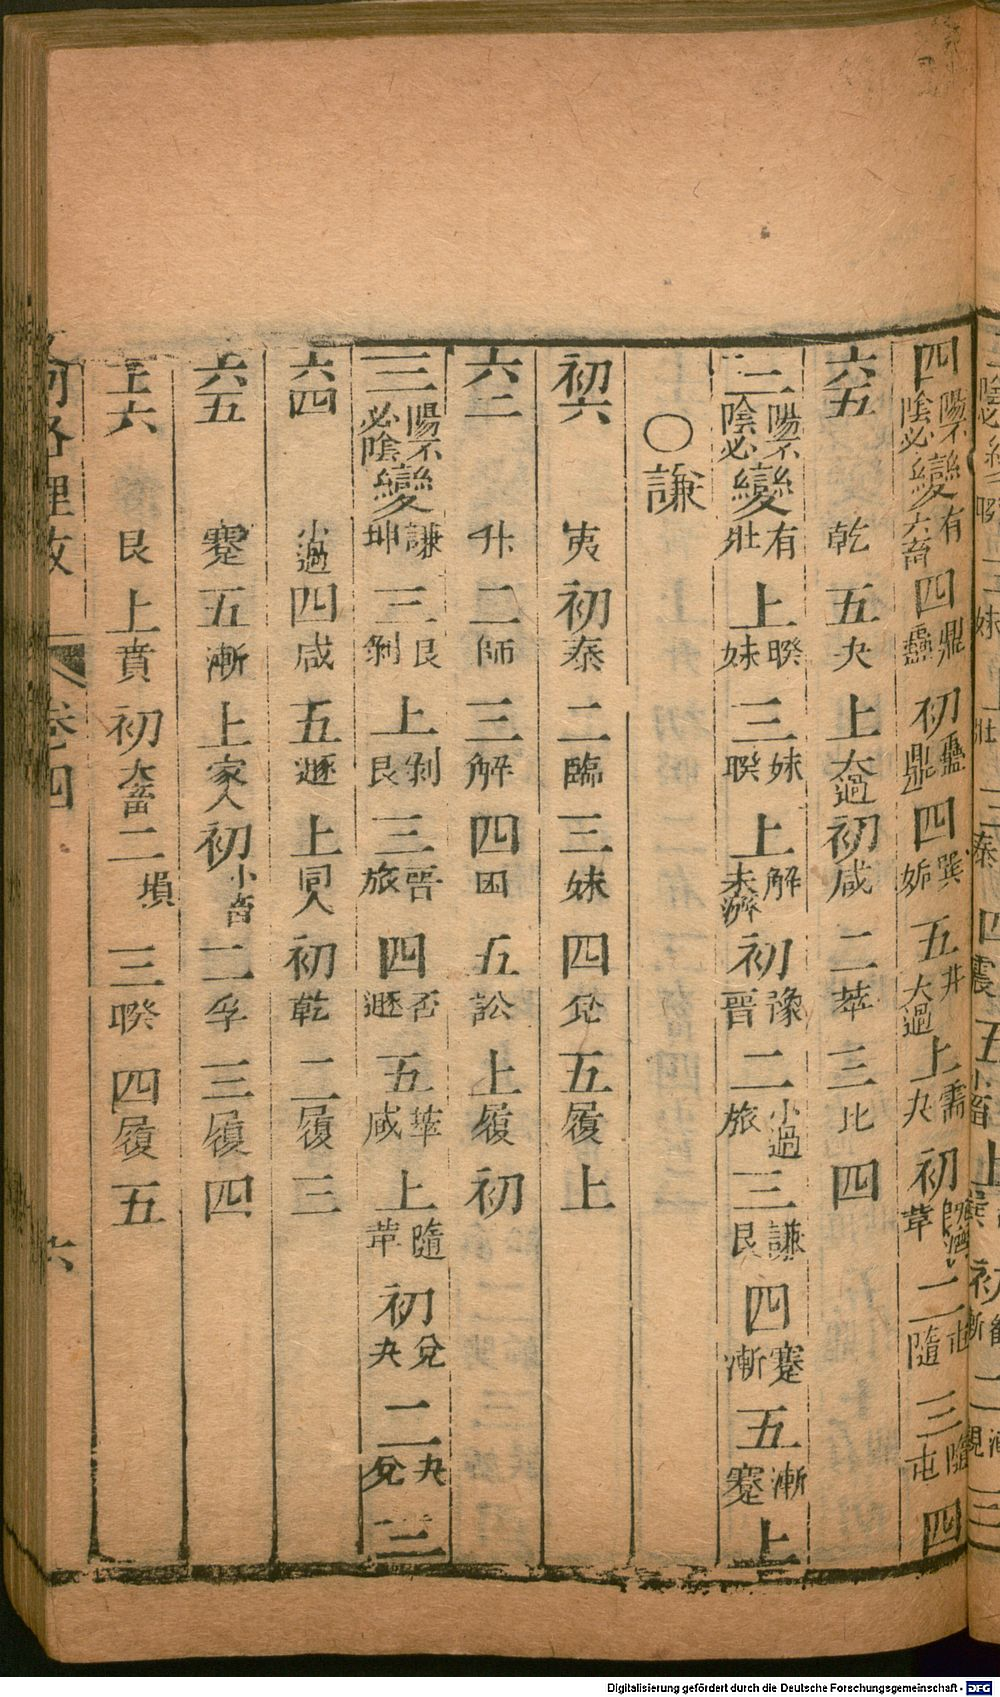 四陽不陰必變大有大畜四鼎蠱初蠱鼎四巽姤五井大過上需夬初既濟革二屯隨三隨屯四
六五乾五夬上大過初咸二萃三比四
二陽不陰必變有壯上睽妹三妹睽上解未濟初豫晋二小過旅三謙艮四蹇漸五漸蹇上
○謙
初六夷初泰二臨三妹四兌五履上
六二升二師三解四困五訟上履初
三陽不必陰變謙坤三艮剝上剝艮三晋旅四否遯五萃咸上隨革初兌夬二夬兌三
六四小過四咸五遯上同人初乾二履三
六五蹇五漸上家人初小畜二孚三履四
上六艮上賁初大畜二損三睽四履五
卷四
六
Digitalisierung gefördert durch die Deutsche Forschungsgemeinschaft - DFG